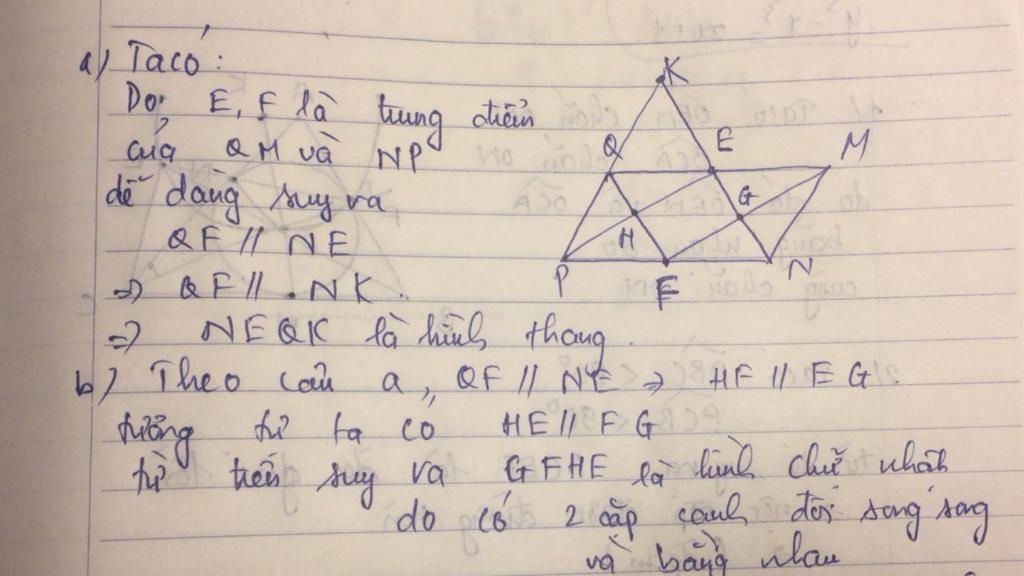 a) Ta có :
Do E, F là trung điểm
của QM và NP
dễ dàng suy ra
QF // NE
=> QF // NK.
=> NEQK là hình thang.
b) Theo câu a, QF // NE => HF // EG.
tương tự ta có HE // FG
từ trên suy ra GFHE là hình chữ nhật
do có 2 cặp cạnh đối song song
và bằng nhau
K
Q
E
M
G
H
P
F
N